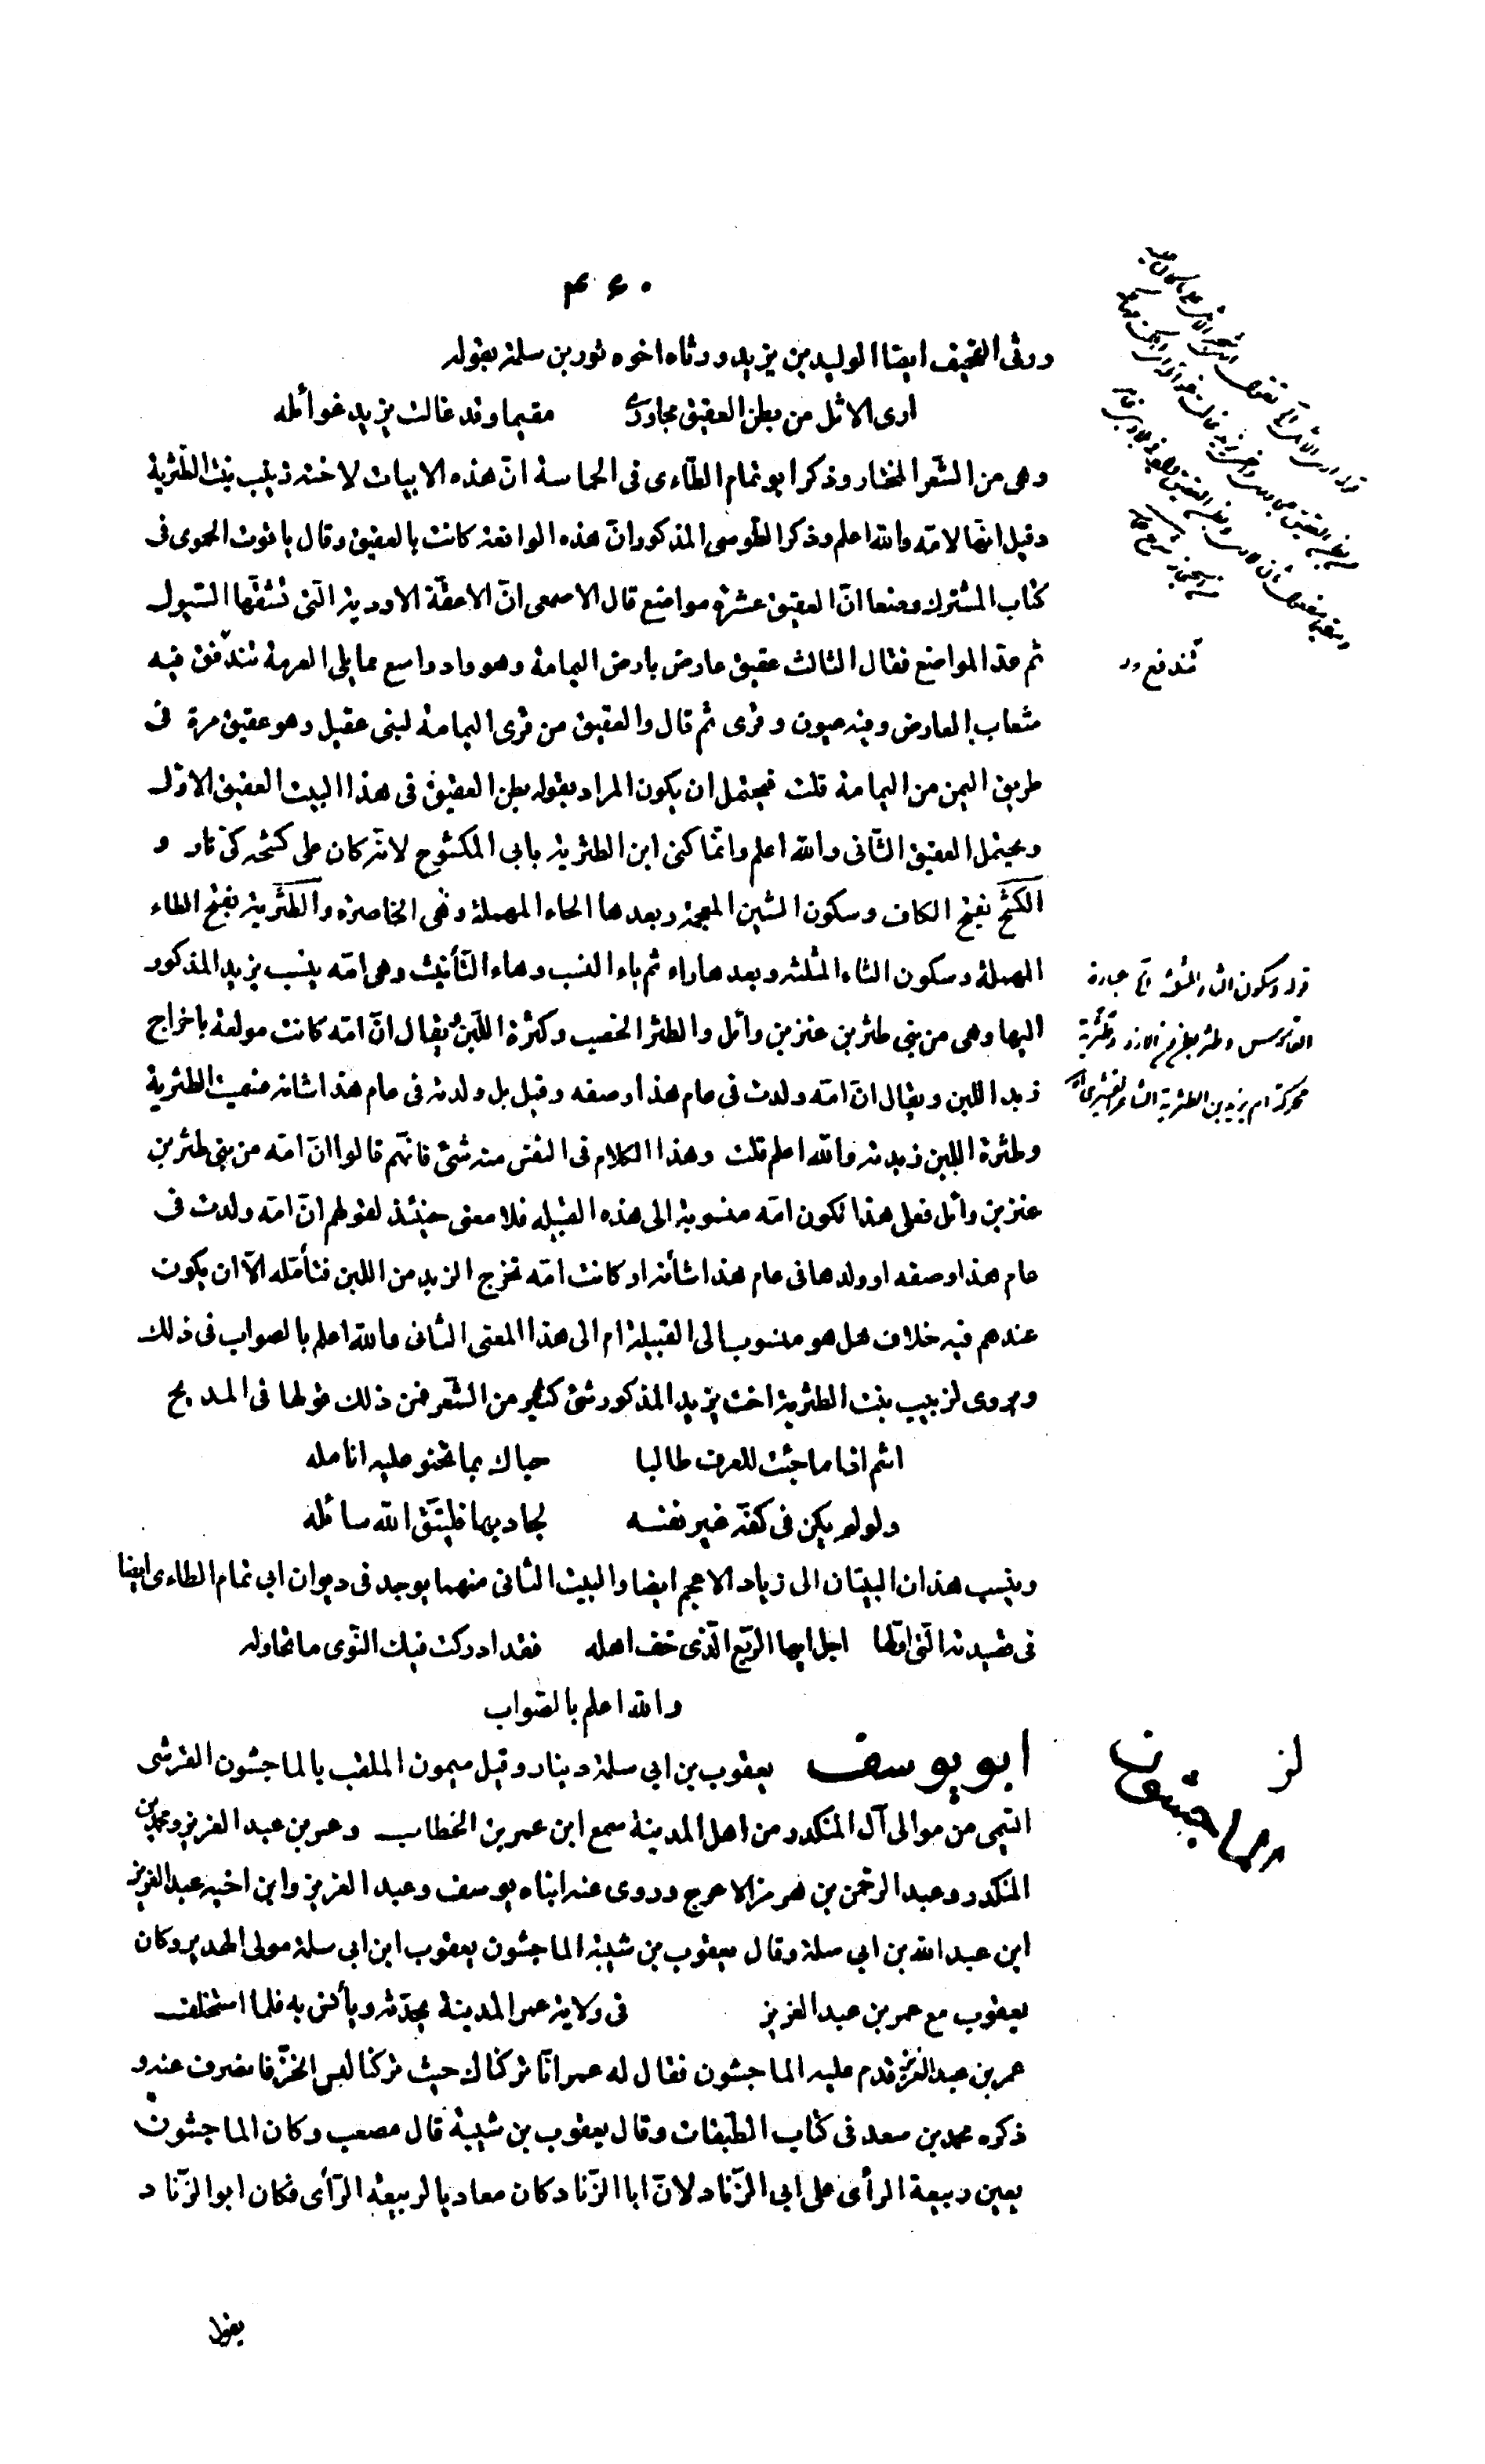 ٤٦٠
ورثى القحيف ايضا الوليد بن يزيد ورثاه اخوه ثور بن سلمة بقوله
ارى الاثل من بطن العقيق مجاورى مقيما وقد غالت يزيد غوائله
وهى من الشعر المختار وذكر ابو تمام الطاءى فى الحماسة ان هذه الابيات لاخته زينب بنت الطثرية
وقيل انها لامه والله اعلم وذكر الطوسى المذكور ان هذه الواقعة كانت بالعقيق وقال ياقوت الحموى فى
كتاب المشترك وضعا ان العقيق عشرة مواضع قال الاصمعى ان الاعقة الاودية التى تشقها السيول
ثم عد المواضع فقال الثالث عقيق عارض بارض اليمامة وهو واد واسع مما يلى العرمة تتدفق فيه
شعاب العارض وفيه عيون وقرى ثم قال والعقيق من قرى اليمامة لبنى عقيل وهو عقيق مرة فى
طريق اليمن من اليمامة قلت فيحتمل ان يكون المراد بقوله بطن العقيق فى هذا البيت العقيق الاول
ويحتمل العقيق الثانى والله اعلم وانما كنى ابن الطثرية بابى المكشوح لانه كان على كشحه كى نار و
الكشح بفتح الكاف وسكون الشين المعجمة وبعدها الحاء المهملة وهى الخاصرة والطثرية بفتح الطاء
المهملة وسكون الثاء المثلثة وبعدها راء ثم ياء النسب وهاء التأنيث وهى امه ينسب يزيد المذكور
اليها وهى من بنى طثر بن عنز بن وائل والطثر الخصب وكثرة اللبن يقال ان امه كانت مولعة باخراج
زبد اللبن ويقال ان امه ولدت فى عام هذا وصفه وقيل بل ولدته فى عام هذا شانه فسميت الطثرية
وطثرة اللبن زبدته والله اعلم قلت وهذا الكلام فى النفس منه شئ فانهم قالوا ان امه من بنى طثر بن
عنز بن وائل فعلى هذا تكون امه منسوبة الى هذه القبيله فلا معنى حينئذ لقولهم ان امه ولدت فى
عام هذا وصفه او ولدها فى عام هذا شأنه او كانت امه تخرج الزبد من اللبن فتأمله الا ان يكون
عندهم فيه خلاف هل هو منسوب الى القبيلة ام الى هذا المعنى الثانى والله اعلم بالصواب فى ذلك
ويروى لزينب بنت الطثرية اخت يزيد المذكور شئ كثير من الشعر فمن ذلك قولها فى المديح
اشم اذا ما جئت للعرف طالبا حباك بما تحنو عليه انامله
ولو لم يكن فى كفه غير نفسه لجاد بها فليتق الله سائله
وينسب هذان البيتان الى زياد الاعجم ايضا والبيت الثانى منهما يوجد فى ديوان ابى تمام الطاءى ايضا
فى قصيدته التى اولها اجل ايها الربع الذى خف اهله فقد ادركت فيك النوى ما تحاوله
والله اعلم بالصواب
ابو يوسف يعقوب بن ابى سلمة دينار وقيل ميمون الملقب بالماجشون القرشى
التيمى من موالى آل المنكدر من اهل المدينة سمع ابن عمر بن الخطاب وعمر بن عبد العزيز ومحمد بن
المنكدر وعبد الرحمن بن هرمز الاعرج وروى عنه ابناه يوسف وعبد العزيز وابن اخيه عبد العزيز
ابن عبد الله بن ابى سلمة وقال يعقوب بن شيبة الماجشون يعقوب ابن ابى سلمة مولى الهدير وكان
يعقوب مع عمر بن عبد العزيز فى ولاية عمر المدينة يحدثه ويأنس به فلما استخلف
عمر بن عبد العزيز قدم عليه الماجشون فقال له عمر انا تركناك حيث تركنا لبس الخز فانصرف عنه و
ذكره محمد بن سعد فى كتاب الطبقات وقال يعقوب بن شيبة قال مصعب وكان الماجشون
يعين ربيعة الرأى على ابى الزناد لان ابا الزناد كان معاديا لربيعة الرأى فكان ابو الزناد
يقول
تندفع
قوله وسكون الثاء المثلثة الخ عبارة
القاموس وطثر بطن من الازد وطثرية
محركة ام يزيد بن الطثرية الشاعر القشيرى
الماجشون